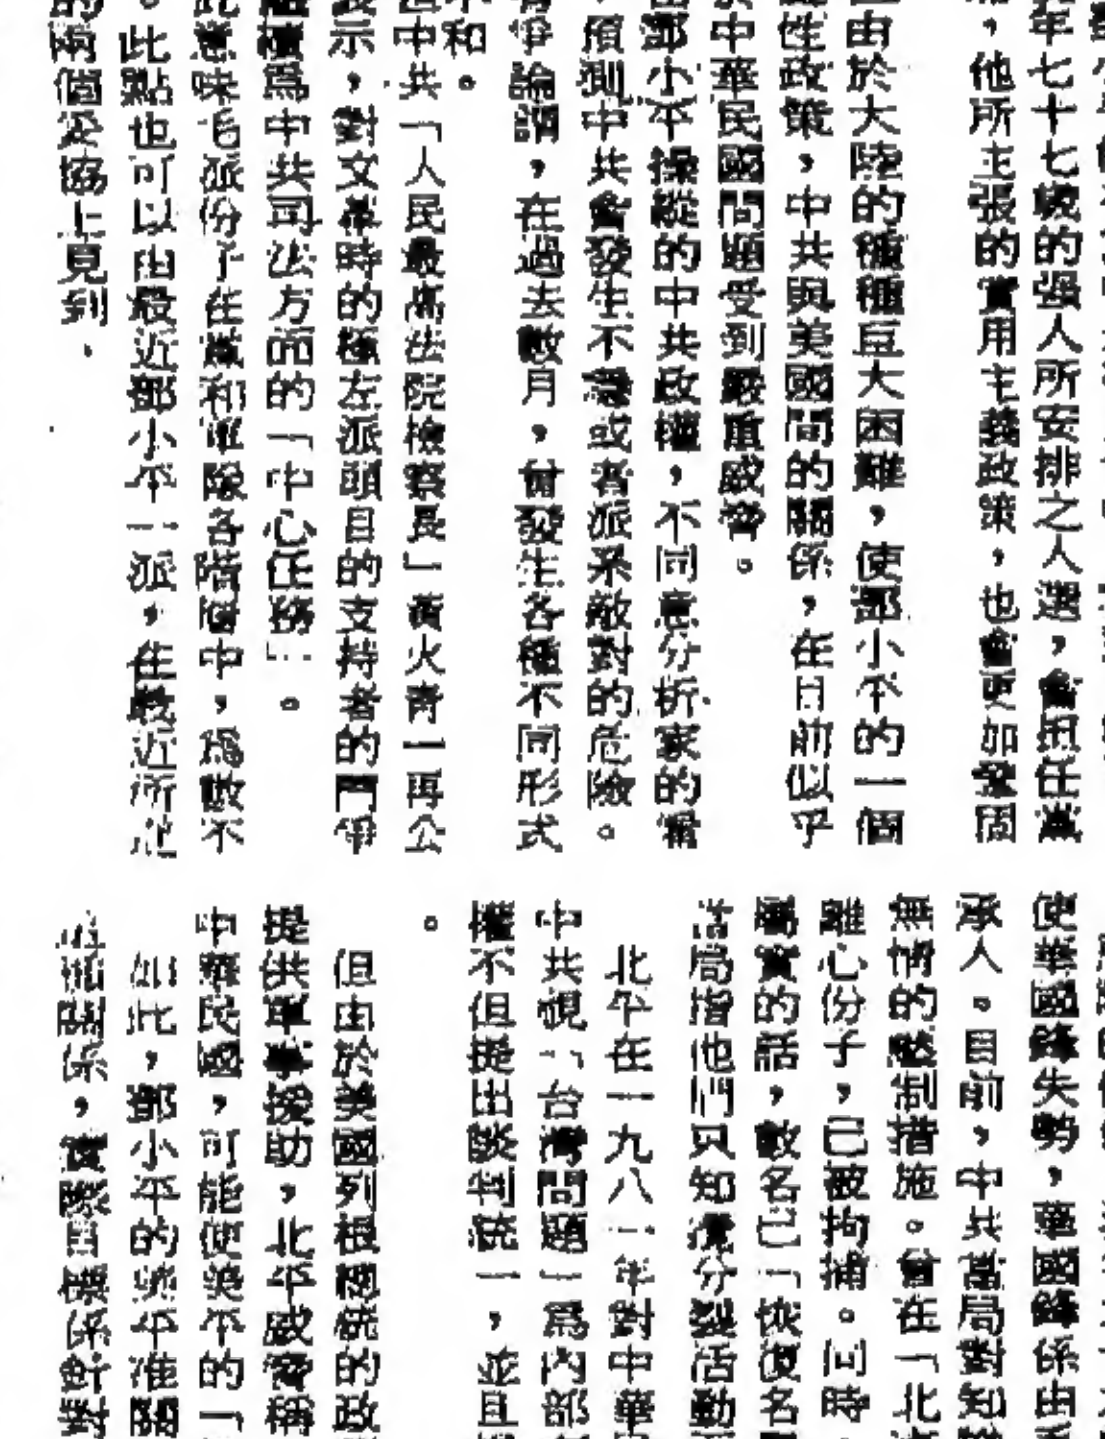 年七十七歲的强人所安排之人選，會出任黨
，他所主張的實用主義政策，也會更加鞏固
由於大陸的種種巨大困難，使鄧小平的一個
性政策，中共與美國間的關係，在目前似乎
中華民國問題受到嚴重威脅。
鄧小平操縱的中共政權，不同意分析家的
預測中共會發生不穩或者派系敵對的危險。
爭論謂，在過去數月，曾發生各種不同形式
不和。
中共「人民最高法院檢察長」黃火青一再公
表示，對文革時的極左派頭目的支持者的鬥爭
積爲中共司法方面的「中心任務」。
此意味毛派份子在黨和軍隊各階層中，爲數不
。此點也可以由最近鄧小平一派，在最近所
的兩個妥協上見到．
使華國鋒失勢，華國鋒係由
承人。目前，中共當局對知
無情的懲制措施。曾在「北
離心份子，已被拘捕。同時
屬實的話，數名已「恢復名
當局指他們只知搞分裂活動
北平在一九八一年對中華
中共視「台灣問題」爲內部
權不但提出談判統一，並且
。
但由於美國列根總統的政
提供軍事援助，北平威脅稱
中華民國，可能使美平的「
如此，鄧小平的美平准關
關係，實際目標係針對